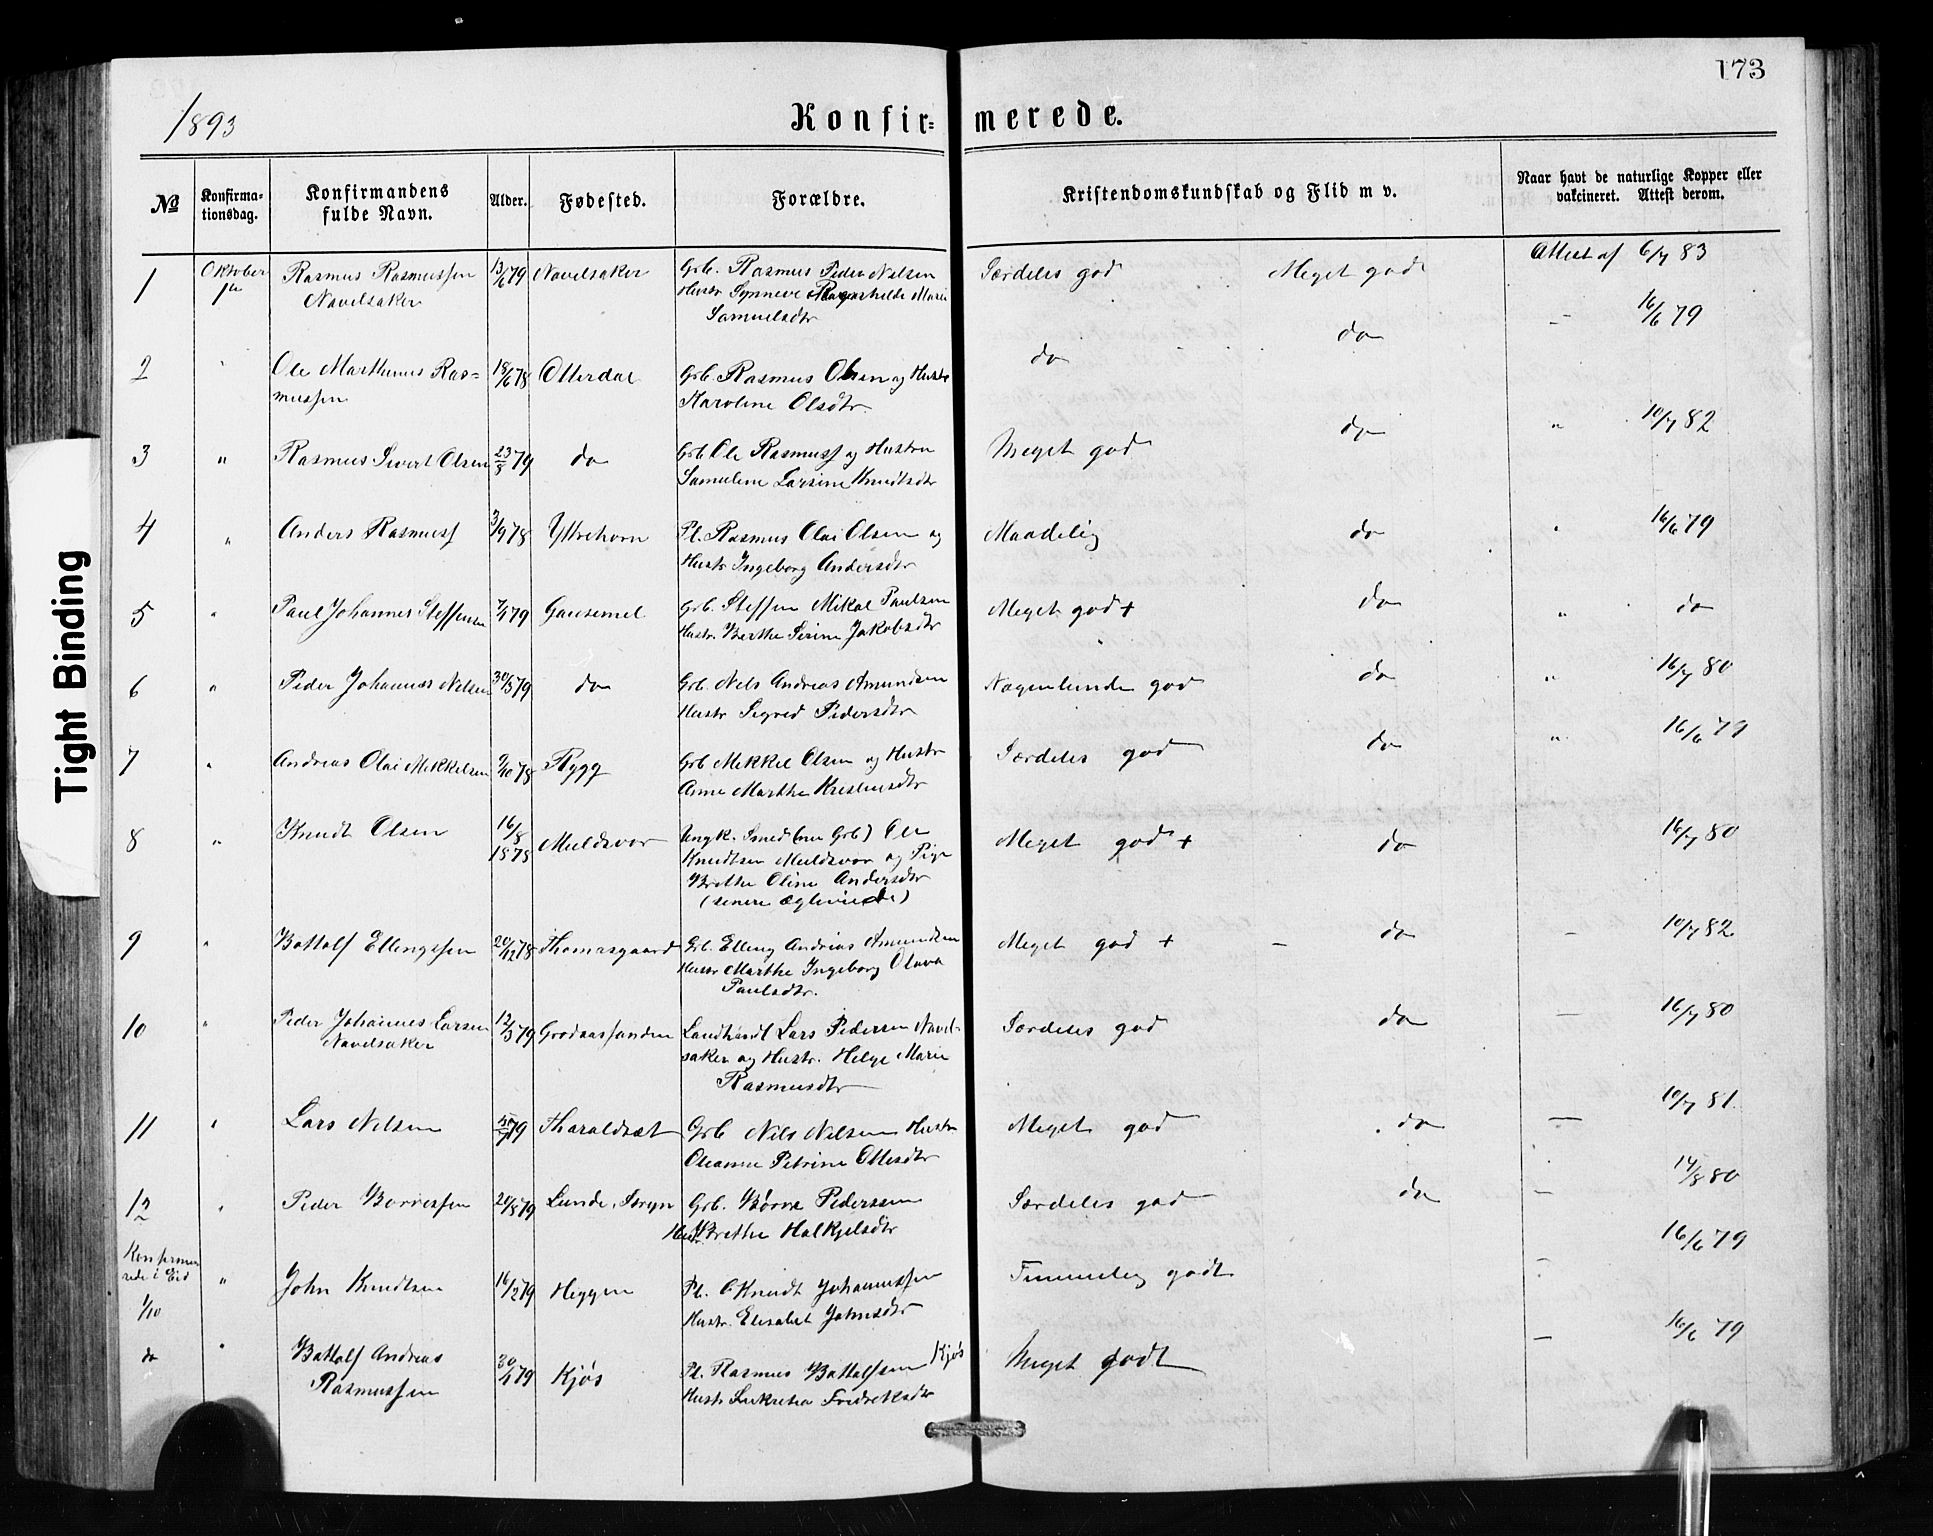 173
1893
Konfir=merede.
№ Konfirma-tionsdag. Konfirmandens fulde Navn. Alder. Fødested. Forældre. Kristendomskundskab og Flid m v. Naar havt de naturlige Kopper eller vakcineret. Attest derom.
1 Oktober 1ste Rasmus Rasmussen 13/6 79 Navelsaker Grb. Rasmus Peder Nilsen Særdeles god Meget god Attest af 6/7 83
Navelsaker Hustr Synneve Ragnhilde Marie
Samuelsdtr
2 " Ole Marthinus Ras= 18/6 78 Otterdal Grb. Rasmus Olsen og Hustr do do — 16/6 79
mussen Karoline Olsdtr.
3 " Rasmus Sivert Olsen 23/5 79 do Grb Ole Rasmuss og Hustru Meget god do " 10/7 82
Samueline Larsine Knudtsdtr
4 " Anders Rasmuss 3/9 78 Yttrehorn Pl. Rasmus Olai Olsen og Maadelig do " 16/6 79
Hustr Ingeborg Andersdtr
5 " Paul Johannes Steffensen 7/1 79 Gausemel Grb. Steffen Mikal Paulsen Meget god + do " do
Hustr. Berthe Serine Jakobsdtr
6 " Peder Johannes Nilsen 30/3 79 do Grb. Nils Andreas Amundsen Nogenlunde god do " 16/7 80
Hustr Sigred Pedersdtr
7 " Andreas Olai Mikkelsen 9/10 78 Rygg Grb Mikkel Olsen og Hustr Særdeles god do " 16/6 79
Anne Marthe Kristensdtr
8 " Knudt Olsen 16/8 1878 Muldsvor Ungk. Smed (nu Grb) Ole Meget god + do 16/7 80
Knudtsen Muldsvor og Pige
Brethe Oline Andersdtr
(senere Ægteviede)
9 " Bottolf Ellingssen 20/12 78 Thomasgaard Grb. Elling Andreas Amundsen Meget god + — do — 10/7 82
Hustr Marthe Ingeborg Olava
Paulsdtr.
10 " Peder Johannes Larsen 12/3 79 Grodaassanden Landhandl Lars Pedersen Navel- Særdeles god do — 16/7 80
Navelsaker saker og Hustr. Helge Marie
Rasmusdtr
11 " Lars Nilsen 79 Haraldsæt Grb Nils Nilsen Hustr Meget god do — 10/7 81
Oleanne Petrine Ottesdtr
12 " Peder Børressen 20/8 79 Lunde, Stryn Grb. Børre Pederssen Særdeles god do — 14/8 80
Hustr. Brethe Halkjelsdtr
Konfirme-
rede i Eid " John Knudtsen 16/2 79 Heggen Pl. Knudt Johannessen Temmelig godt — 16/6 79
1/10 Hustr. Elisabet Johnsdtr
do " Bottolf Andreas 30/1 79 Kjøs Pl. Rasmus Bottolfsen Kjøs Meget godt — 16/6 79
Rasmussen Hustr Lukretia Fredriksdtr
Tight Binding